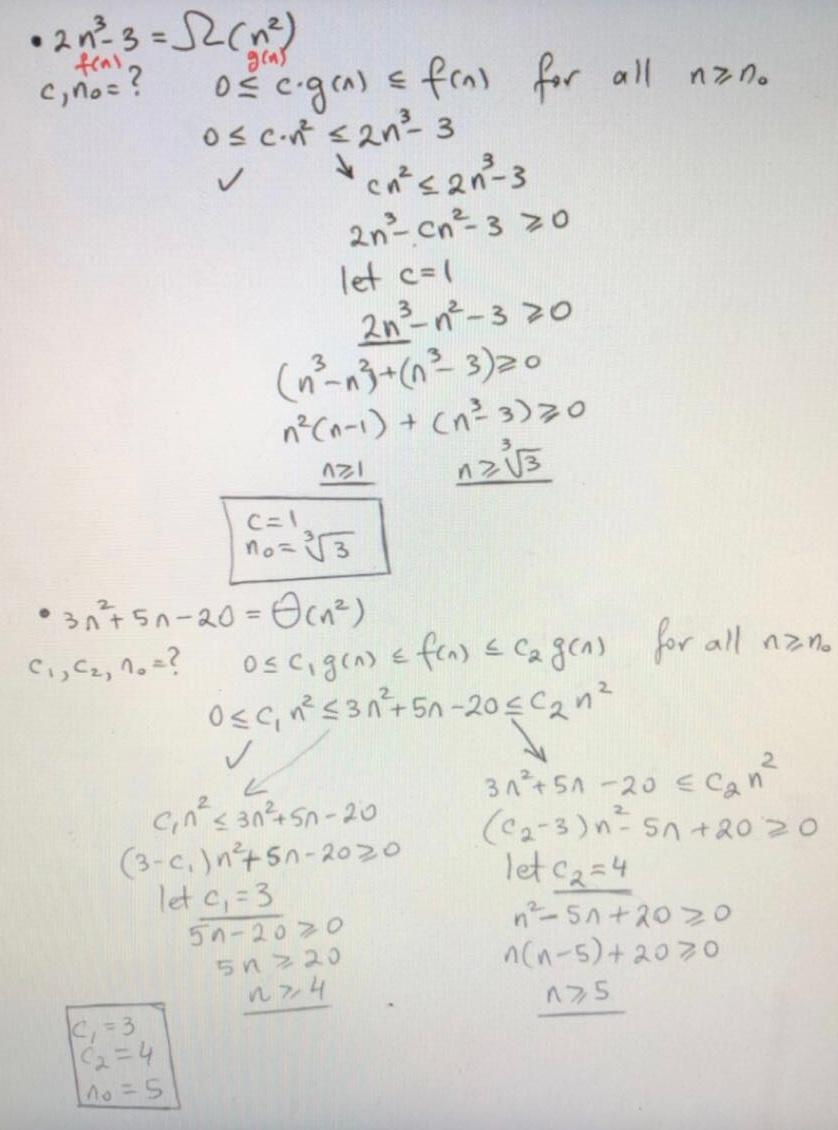 • 2n³-3 = Ω(n²)
f(n) g(n)
c, n₀ = ? 0 ≤ c·g(n) ≤ f(n) for all n ≥ n₀
0 ≤ c·n² ≤ 2n³-3
✓ ↘ cn² ≤ 2n³-3
2n³-cn²-3 ≥ 0
let c=1
2n³-n²-3 ≥ 0
(n³-n²)+(n³-3) ≥ 0
n²(n-1) + (n³-3) ≥ 0
n≥1 n≥∛3
c=1
n₀=∛3
• 3n²+5n-20 = Θ(n²)
c₁, c₂, n₀ = ? 0 ≤ c₁g(n) ≤ f(n) ≤ c₂g(n) for all n≥n₀
0 ≤ c₁n² ≤ 3n²+5n-20 ≤ c₂n²
✓ ↙ ↘
c₁n² ≤ 3n²+5n-20
(3-c₁)n²+5n-20 ≥ 0
let c₁=3
5n-20 ≥ 0
5n ≥ 20
n ≥ 4
3n²+5n-20 ≤ c₂n²
(c₂-3)n²-5n+20 ≥ 0
let c₂=4
n²-5n+20 ≥ 0
n(n-5)+20 ≥ 0
n≥5
c₁=3
c₂=4
n₀=5